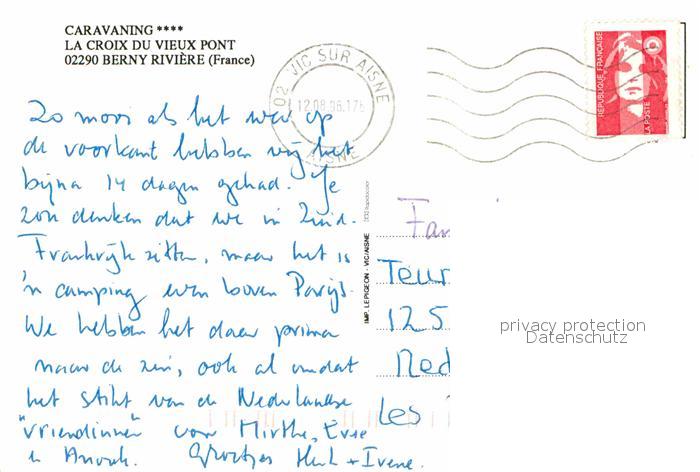 CARAVANING ****
LA CROIX DU VIEUX PONT
02290 BERNY RIVIÈRE (France)
02 VIC SUR AISNE
12.08.96.17h
AISNE
RÉPUBLIQUE FRANÇAISE
LA POSTE
Zo mooi als het weer op
de voorkant hebben wij het
bijna 14 dagen gehad. Je
zou denken dat we in Zuid-
Frankrijk zitten, maar het is
'n camping even boven Parijs.
We hebben het daar prima
naar de zin, ook al omdat
het stikt van de Nederlandse
"vriendinnen" voor Mirthe, Evie
en Anouk. Groetjes Henk + Irene.
IMP. LEPIGEON - VIC/AISNE
Fam
Teur
125
Ned
Les
privacy protection
Datenschutz